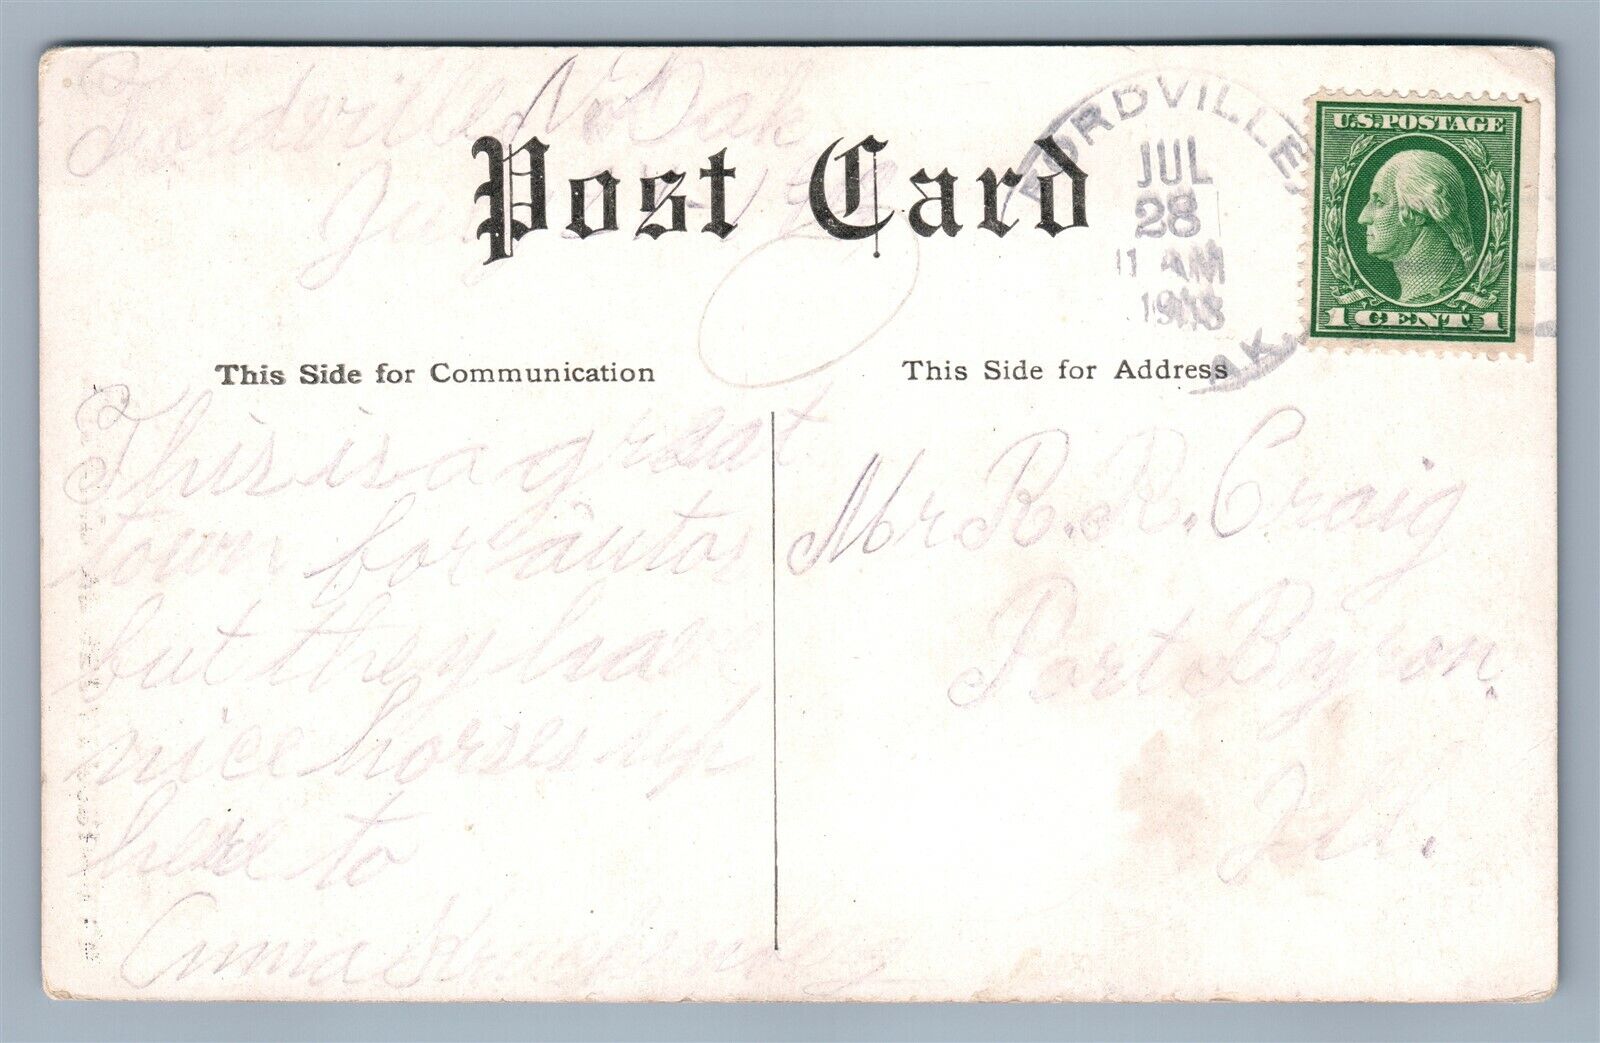 Fordville No Dak
Post Card
FORDVILLE
JUL
28
11 AM
AK.
U.S. POSTAGE
1 CENT 1
This Side for Communication
This Side for Address
This is a great
town for autos
but they have
nice horses up
here to
Anna
Mr R. R. Craig
Port Byron
Ill.